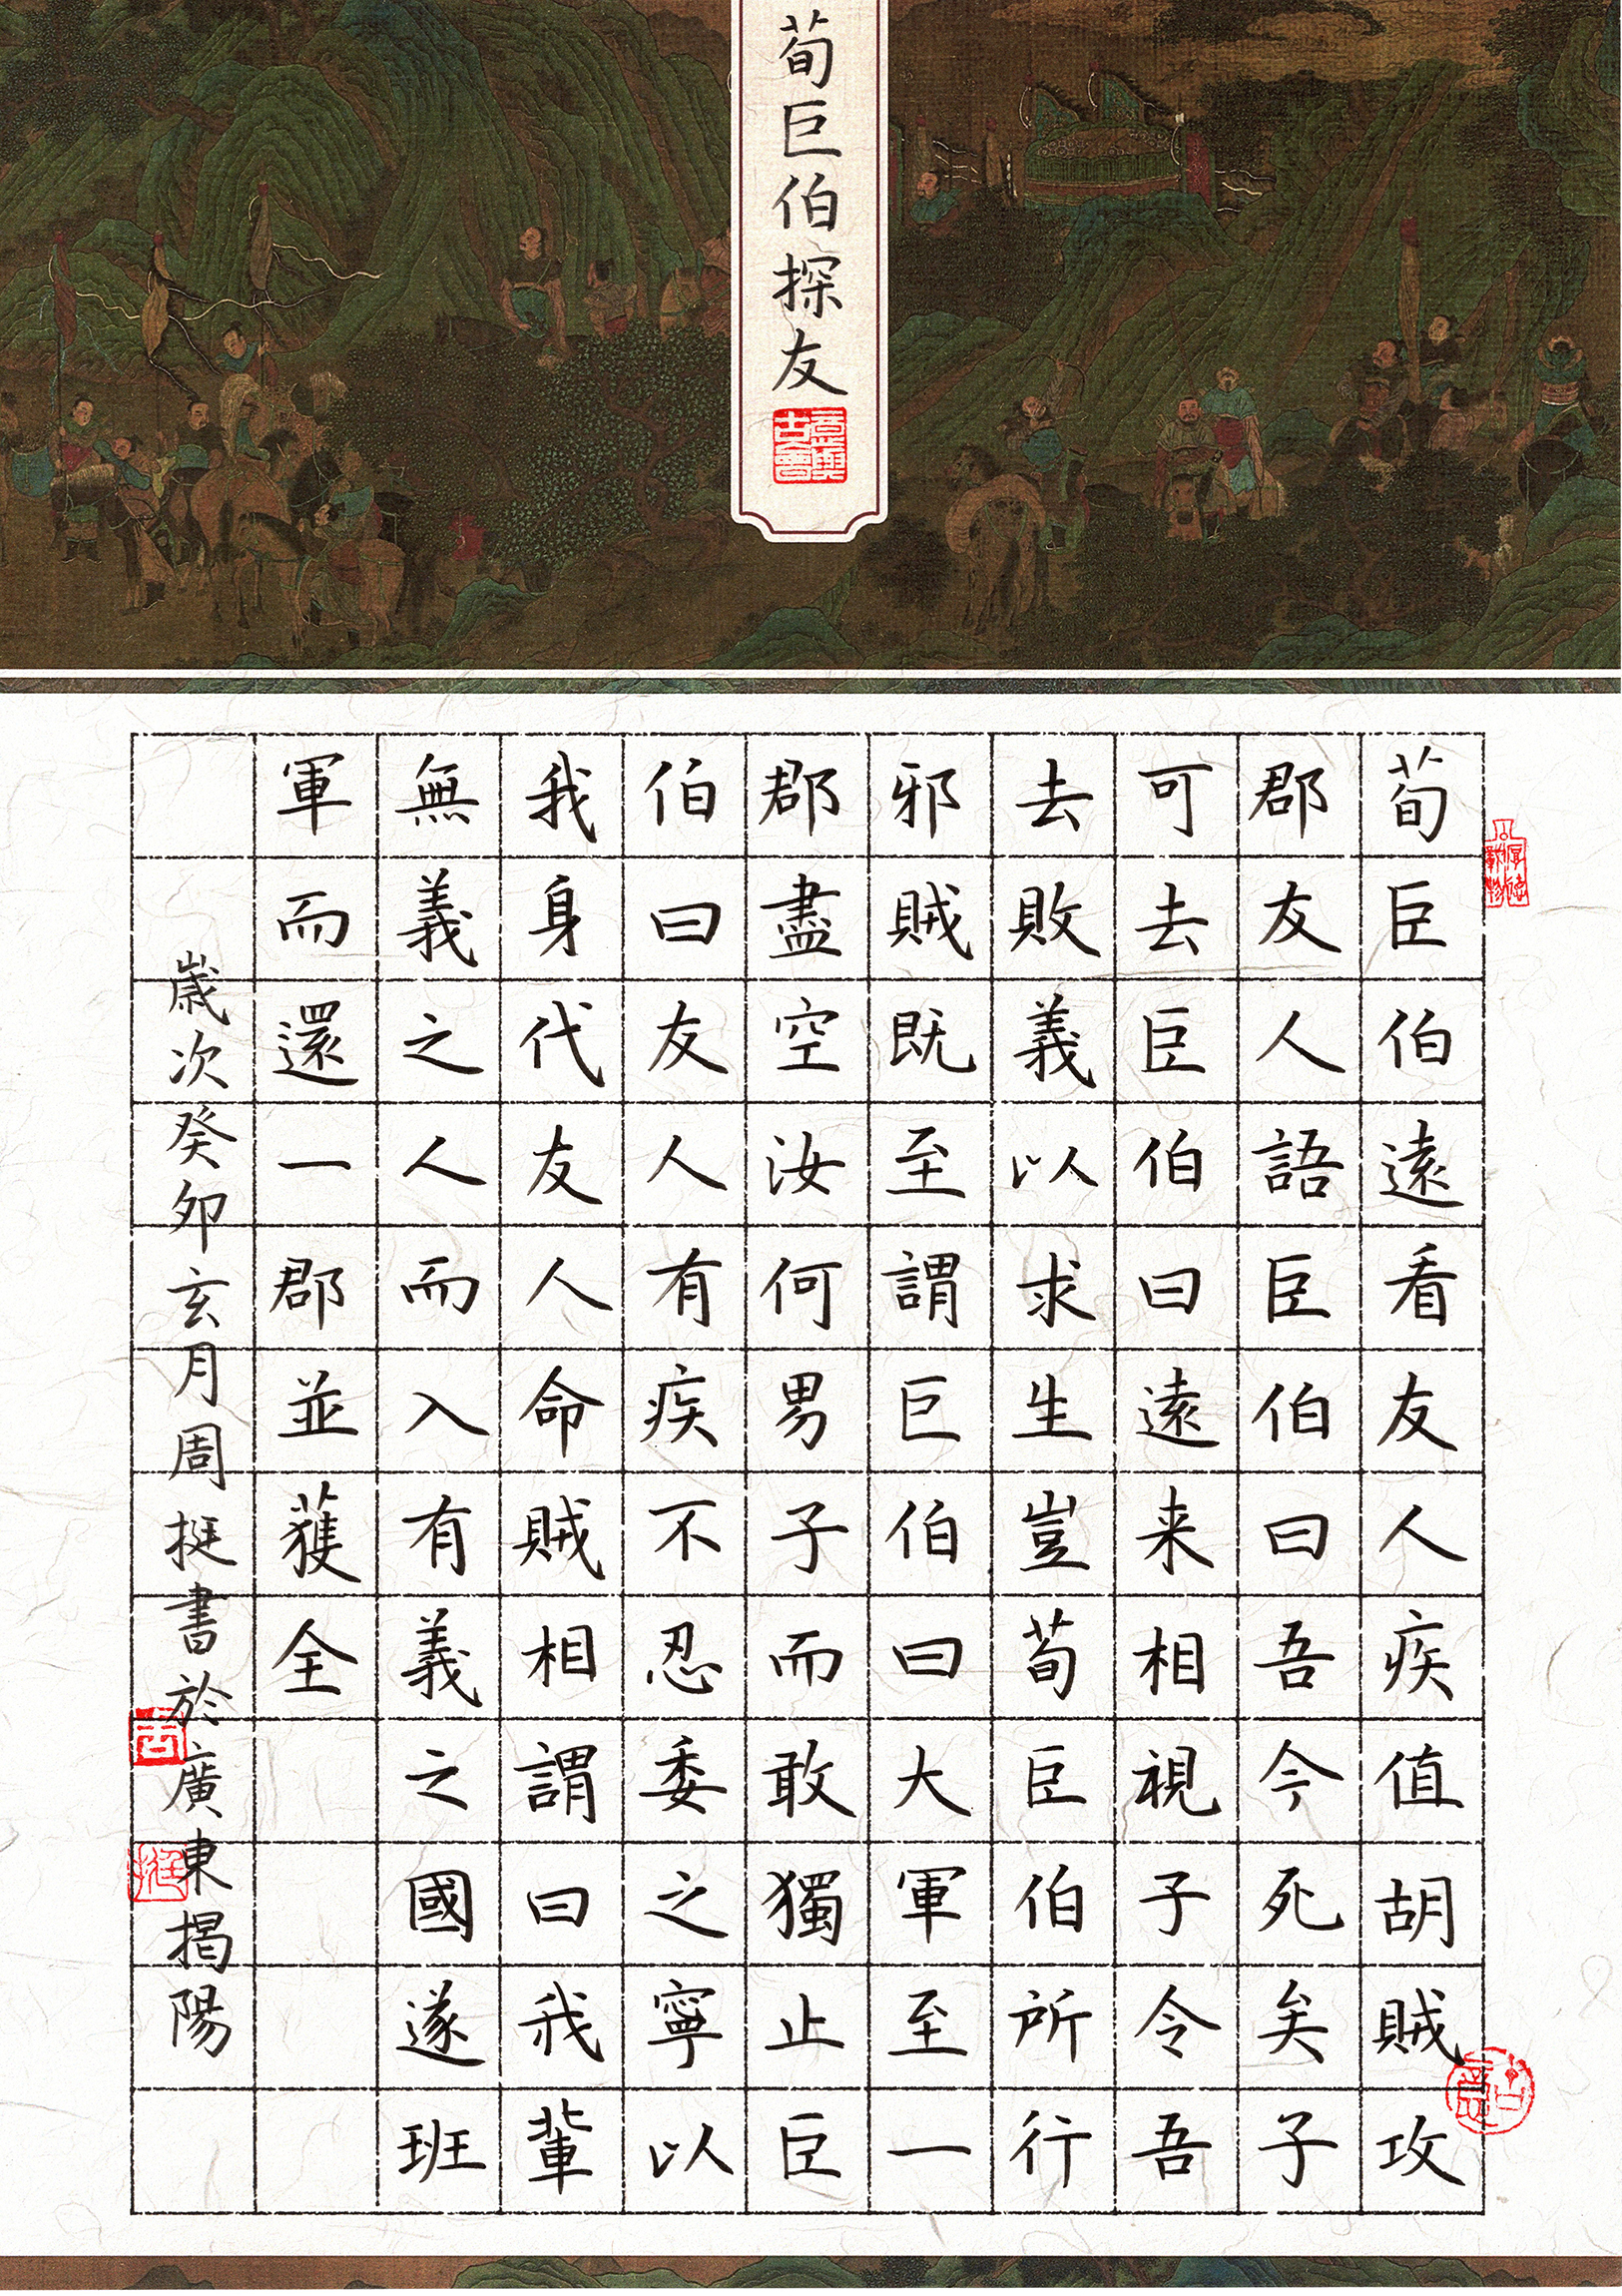 荀巨伯探友
意與古會
荀臣伯遠看友人疾值胡賊攻
郡友人語臣伯曰吾今死矣子
可去臣伯曰遠来相視子令吾
去敗義以求生豈荀臣伯所行
邪賊既至謂巨伯曰大軍至一
郡盡空汝何男子而敢獨止臣
伯曰友人有疾不忍委之寧以
我身代友人命賊相謂曰我輩
無義之人而入有義之國遂班
軍而還一郡並獲全
歲次癸卯玄月周挺書於廣東揭陽
挺
厚德載物